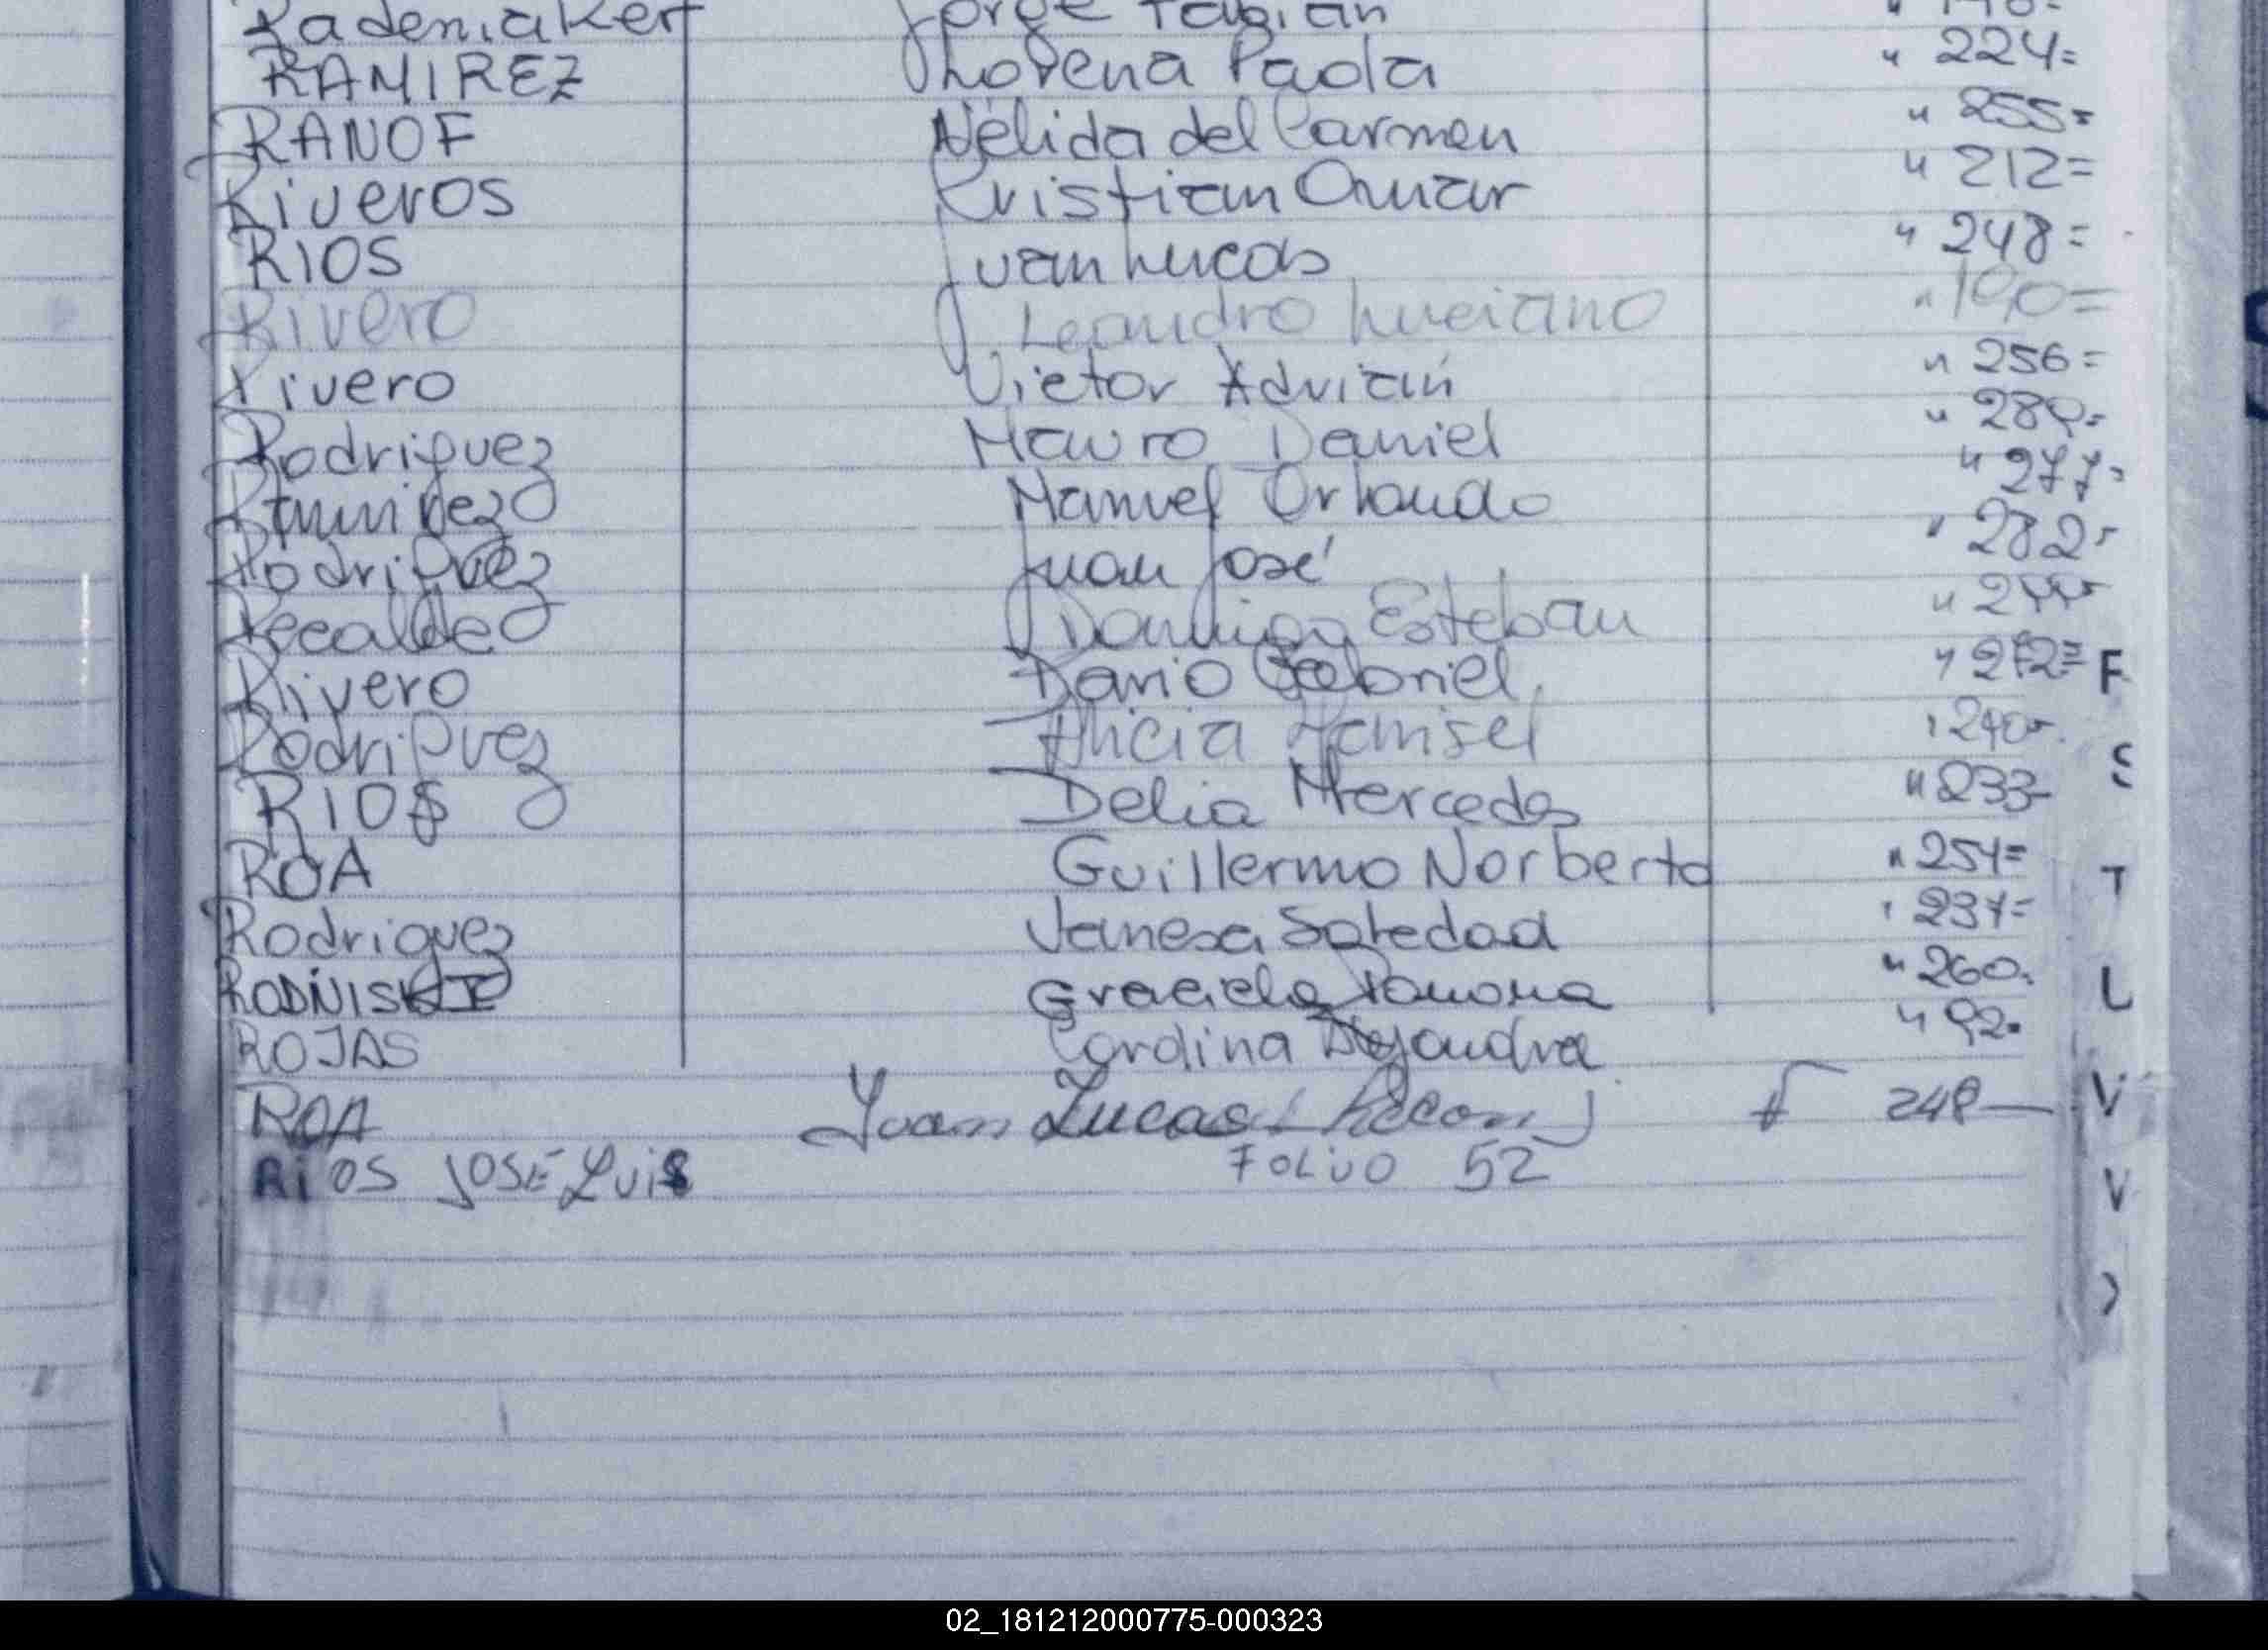 Rademaker Jorge Fabián " 140=
RAMIREZ Lorena Paola " 224=
RANOF Nélida del Carmen " 255=
Riveros Kristian Omar " 212=
RIOS Juan Lucas " 248=
Rivero Leandro Luciano " 190=
Rivero Victor Adrián " 256=
Rodriguez Mauro Daniel "
Ramirez Manuel Orlando " 277=
Rodriguez Juan José " 282=
Recalde Domingo Esteban "
Rivero Dario Gabriel " 272= F
Rodriguez Alicia " 240= S
RIOS Delia Mercedes " 233-
ROA Guillermo Norberto " 251= T
Rodriguez Vanesa Soledad " 231=
RODNISKI Graciela Ramona " 260= L
ROJAS Carolina Alejandra " 92=
ROA Juan Lucas f 248— V
RIOS JOSÉ Luis FOLIO 52 V
02_181212000775-000323